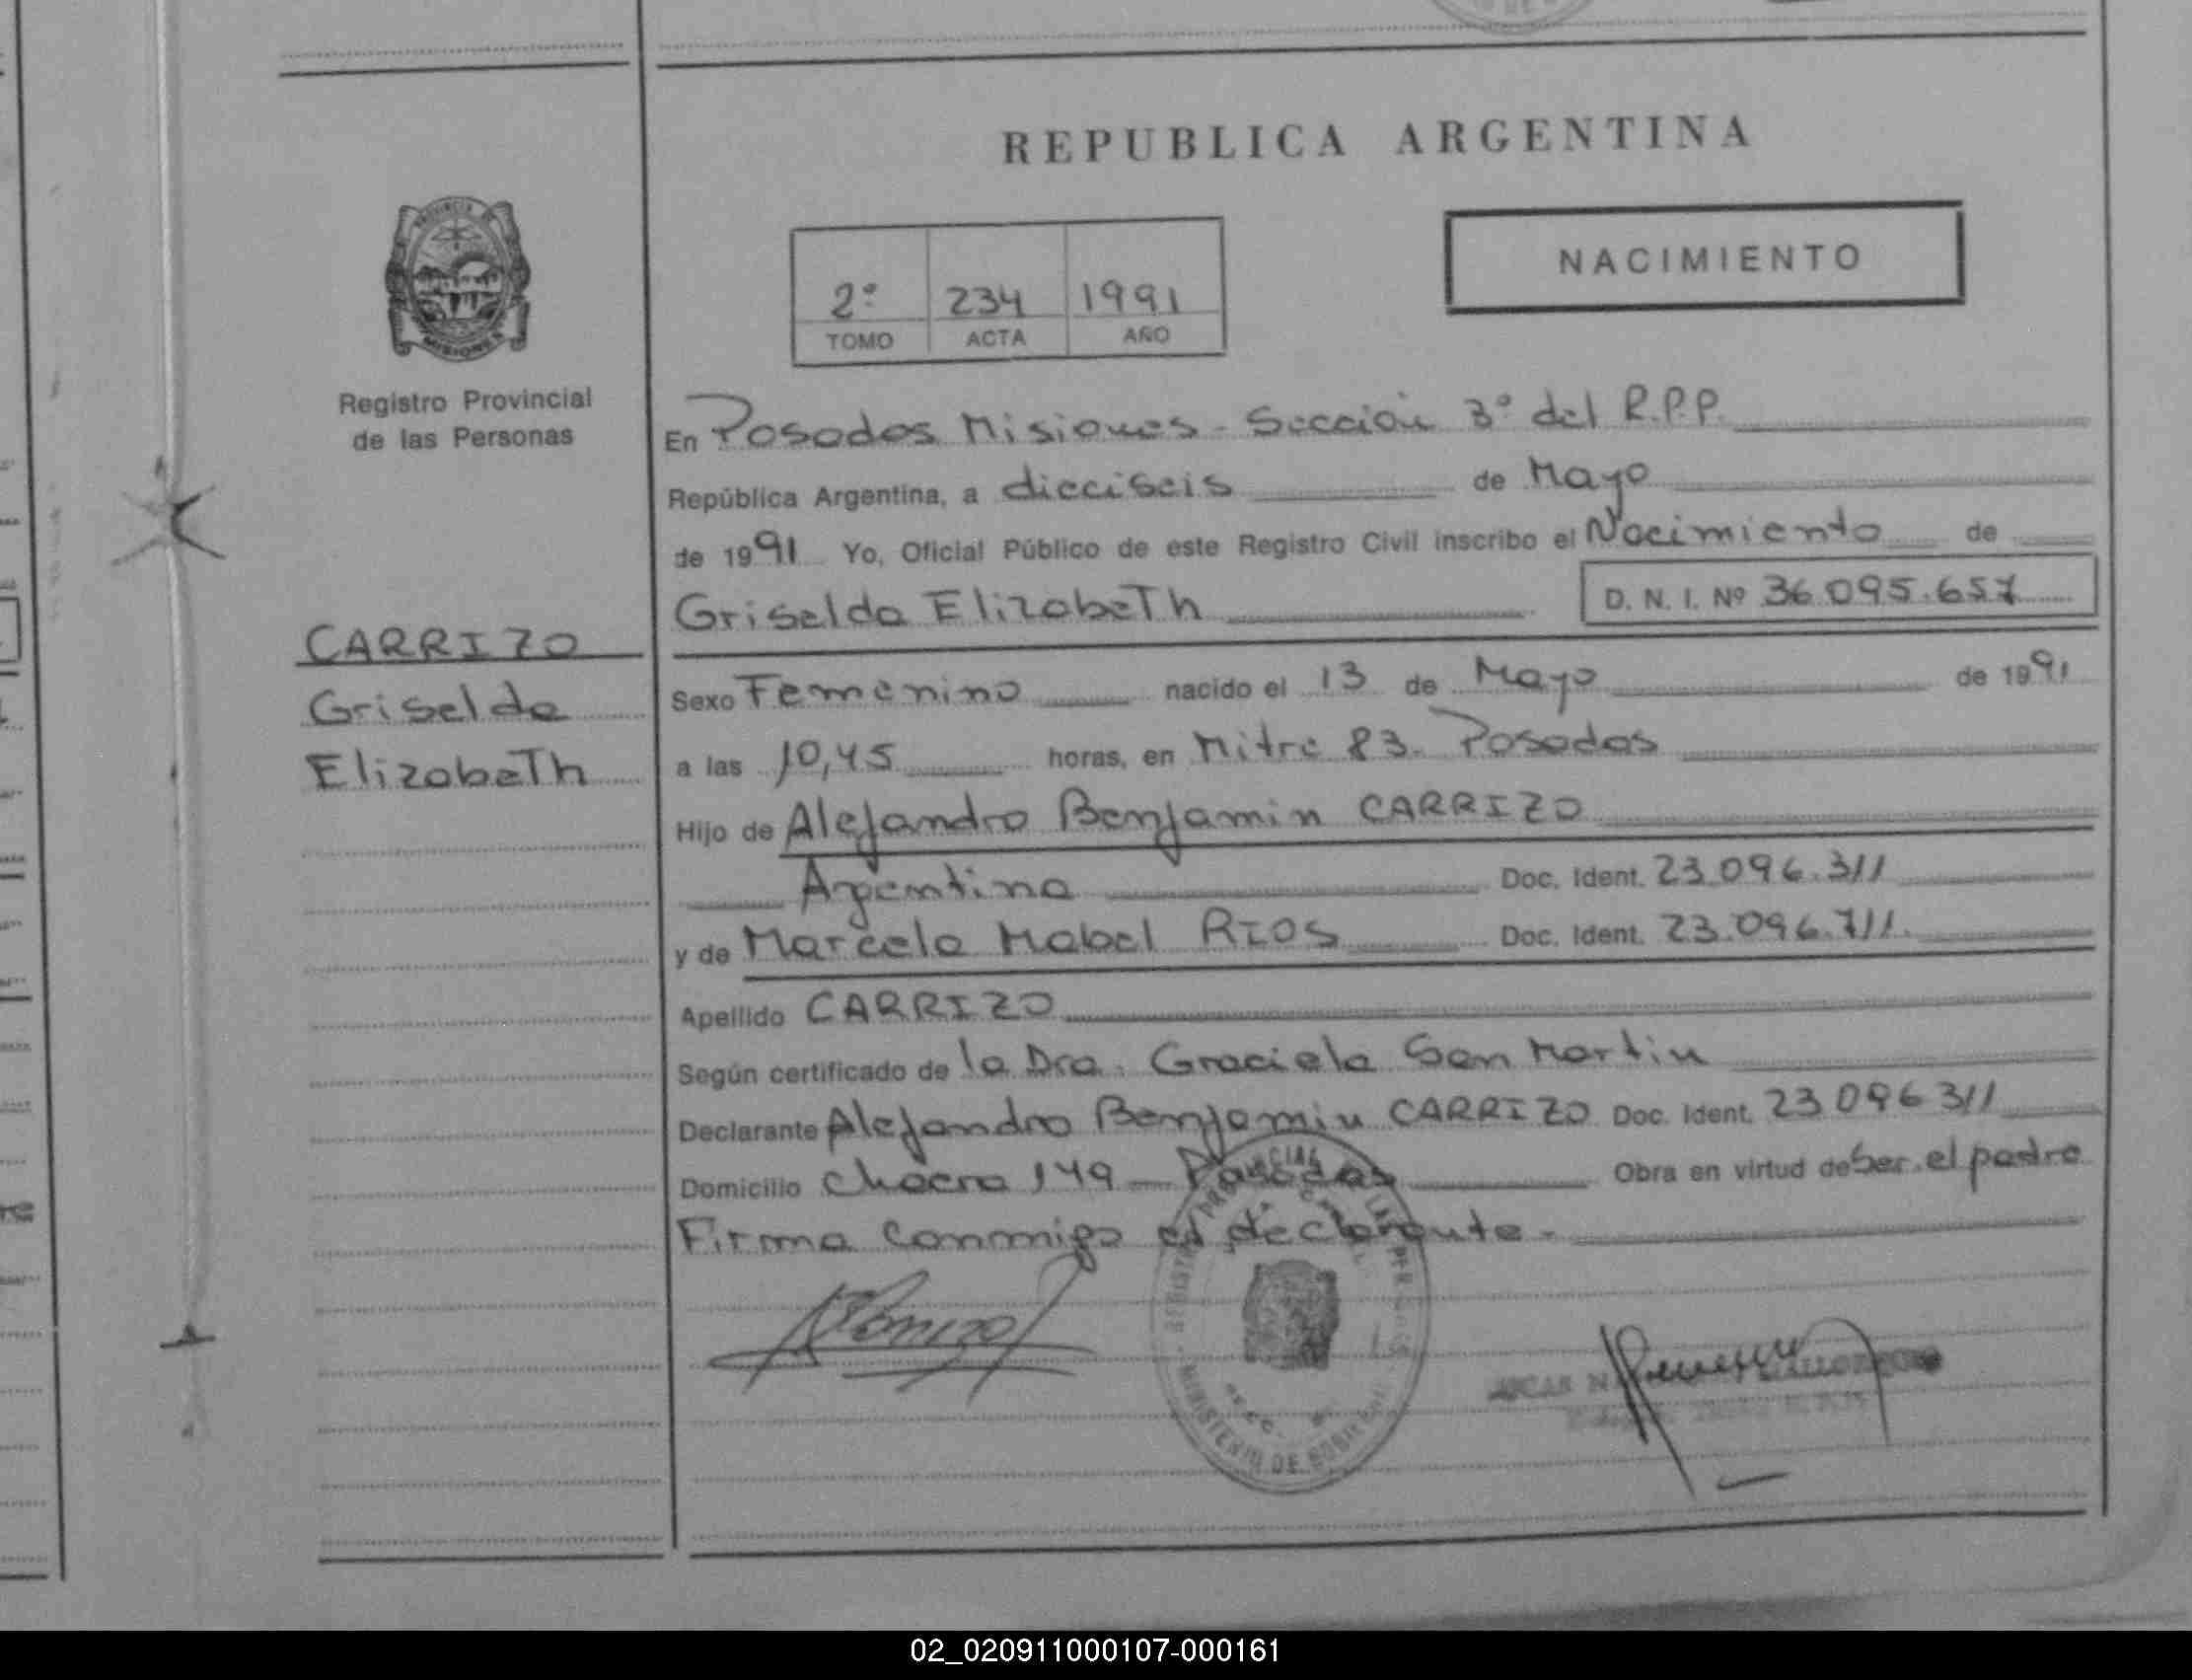 REPUBLICA ARGENTINA
NACIMIENTO
2º 234 1991
TOMO ACTA AÑO
PROVINCIA DE
MISIONES
Registro Provincial
de las Personas
CARRIZO
Griselda
Elizabeth
En Posadas Misiones - Sección 3º del R.P.P.
República Argentina, a dieciseis de Mayo
de 1991 Yo, Oficial Público de este Registro Civil inscribo el Nacimiento de
Griselda Elizabeth D. N. I. Nº 36.095.657
Sexo Femenino nacido el 13 de Mayo de 1991
a las 10,45 horas, en Mitre 83. Posadas
Hijo de Alejandro Benjamin CARRIZO
Argentino Doc. Ident. 23.096.311
y de Marcela Mabel RIOS Doc. Ident. 23.096.711.
Apellido CARRIZO
Según certificado de la Dra. Graciela San Martin
Declarante Alejandro Benjamin CARRIZO Doc. Ident. 23 096 311
Domicilio Chacra 149 - Posadas Obra en virtud de Ser el padre
Firma conmigo el declarante.
MINISTERIO DE GOBIERNO
02_020911000107-000161